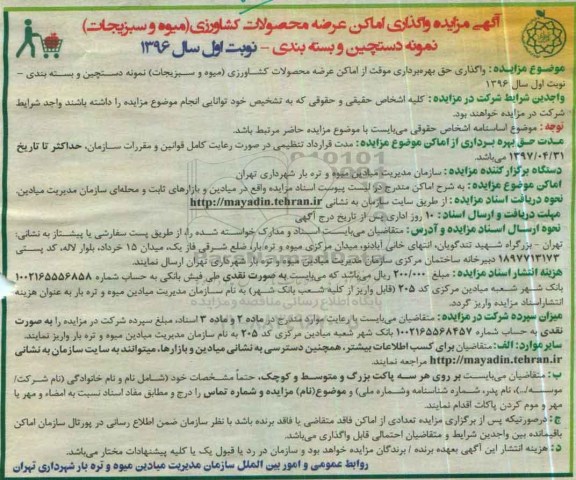 آگهی مزایده واگذاری اماکن عرضه محصولات کشاورزی(میوه و سبزیجات)
نمونه دستچین و بسته بندی – نوبت اول سال ۱۳۹۶
موضوع مزایـده : واگذاری حق بهره‌برداری موقت از اماکن عرضه محصولات کشـاورزی (میوه و سـبزیجات) نمونه دستـچین و بسـته بندی –
نوبت اول سال ۱۳۹۶
واجدین شرایط شرکت در مزایده : کلیه اشخاص حقیقی و حقوقی که به تشخیص خود توانایی انجام موضوع مزایده را داشته باشند واجد شرایط
شرکت در مزایده خواهند بود.
توجه : موضوع اساسنامه اشخاص حقوقی می‌بایست با موضوع مزایده حاضر مرتبط باشد.
مـدت حـق بهره بـرداری از اماکن موضوع مزایده: مدت قرارداد تنظیمی در صورت رعایت کامل قوانین و مقررات سـازمان، حداکثر تا تاریخ
۱۳۹۷/۰۴/۳۱ می‌باشد.
دستگاه برگزار کننده مزایده : سازمان مدیریت میادین میوه و تره بار شهرداری تهران
اماکن موضوع مزایده : به شرح اماکن مندرج در لیست پیوست اسناد مزایده واقع در میادین و بازارهای ثابت و محله‌ای سازمان مدیریت میادین.
نحوه دریافت اسناد مزایده : از طریق سایت سازمان به نشانی http://mayadin.tehran.ir
مهلت دریافت و ارسال اسناد : ۱۰ روز اداری پس از تاریخ درج آگهی
نحوه ارسـال اسـناد مزایده و آدرس : متقاضیان می‌بایست اسـناد و مدارک خواسـته شـده را، از طریق پست سفارشی یا پیشتـاز به نشانی:
تهران – بزرگراه شـهید تندگویان، انتهای خانی آبادنو، میدان مرکزی میوه و تره بار، ضلع شـرقی فاز یک، میدان ۱۵ خرداد، بلوار لاله، کد پستی
۱۸۹۷۷۱۳۱۷۳ دبیرخانه ساختمان مرکزی سازمان مدیریت میادین میوه و تره بار شهرداری تهران ارسال نمایند.
هزینه انتشار اسناد مزایده : مبلغ ۲۰۰/۰۰۰ ریال می‌باشد که می‌بایست به صورت نقدی طی فیش بانکی به حساب شماره ۱۰۰۲۱۶۵۵۶۸۵۸
بانک شـهر شعبه میادین مرکزی کد ۲۰۵ (قابل واریز از کلیه شـعب بانک شهر) به نام سـازمان مدیریت میادین میوه و تره بار به عنوان هزینه
انتشار اسناد مزایده واریز گردد.
میزان سپرده شرکت در مزایده : متقاضیان می‌بایست با رعایت موارد مندرج در ماده ۲ و ماده ۳ اسناد، مبلغ سپرده شرکت در مزایده را به صورت
نقدی به حساب شماره ۱۰۰۲۱۶۵۵۶۸۴۵۷ بانک شهر شعبه میادین مرکزی کد ۲۰۵ به نام سازمان مدیریت میادین میوه و تره بار واریز نمایند.
سایر موارد: الف: متقاضیان برای کسب اطلاعات بیشتر، همچنین دسترسی به نشانی میادین و بازارها، میتوانند به سایت سازمان به نشانی
http://mayadin.tehran.ir مراجعه نمایند.
ب: متقاضیان می‌بایست بر روی هر سـه پاکت بزرگ و متوسـط و کوچک، حتماً مشـخصات خود (شـامل نام و نام خانوادگی (نام شـرکت/
موسسه/...)، نام پدر، شماره شناسنامه وشماره ملی) و موضوع(نام) مزایده و شماره تماس را درج و مطابق مفاد اسناد نسبت به امضاء و مهر یا
مهر و موم کردن پاکات اقدام نمایند.
ج : درصورتیکه پس از برگزاری مزایده تعدادی از اماکن فاقد متقاضی یا فاقد برنده باشد با نظر سازمان ضمن اطلاع رسانی در پورتال سازمان اماکن
باقیمانده بین واجدین شرایط و متقاضیان احتمالی قابل واگذاری می‌باشد.
د : هزینه انتشار این آگهی بعهده برنده / برندگان مزایده خواهد بود و سازمان در رد یا قبول یک یا کلیه پیشنهادات مختار می‌باشد.
روابط عمومی و امور بین الملل سازمان مدیریت میادین میوه و تره بار شهرداری تهران